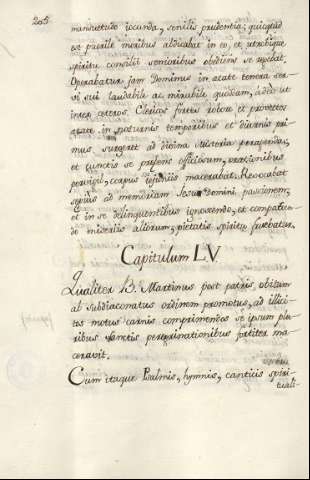 205
mansuetudo iocunda, senilis prudentia; quicquid
est puerile moribus abdicabat in eo, et utrobique
spiritu consilii senioribus obediens se agebat.
Operabatur jam Dominus in aetate tenera ser-
vi sui laudabile ac mirabile quoddam, adeo ut
inter ceteros Clericos fortes robore et provectos
aetate in nocturnis temporibus et diurnis pri-
mus surgeret ad divina misteria peragendas,
et cunctis se praebens officiosum, orationibus
pervigil, corpus jejuniis macerabat. Revocabat
sepius ad memoriam Jesu Domini passionem,
et in se delinquentibus ignoscendo, et compatien-
do miseriis aliorum, pietatis spiritu fruebatur.
Capitulum LV.
Qualiter B. Martinus post patris obitum
ad subdiaconatus ordinem promotus, ad illici-
tos motus carnis comprimendos se ipsum plu-
ribus sanctis peregrinationibus fortiter ma-
ceravit.
Cum itaque Psalmis, hymnis, canticis spiri-
tuali-